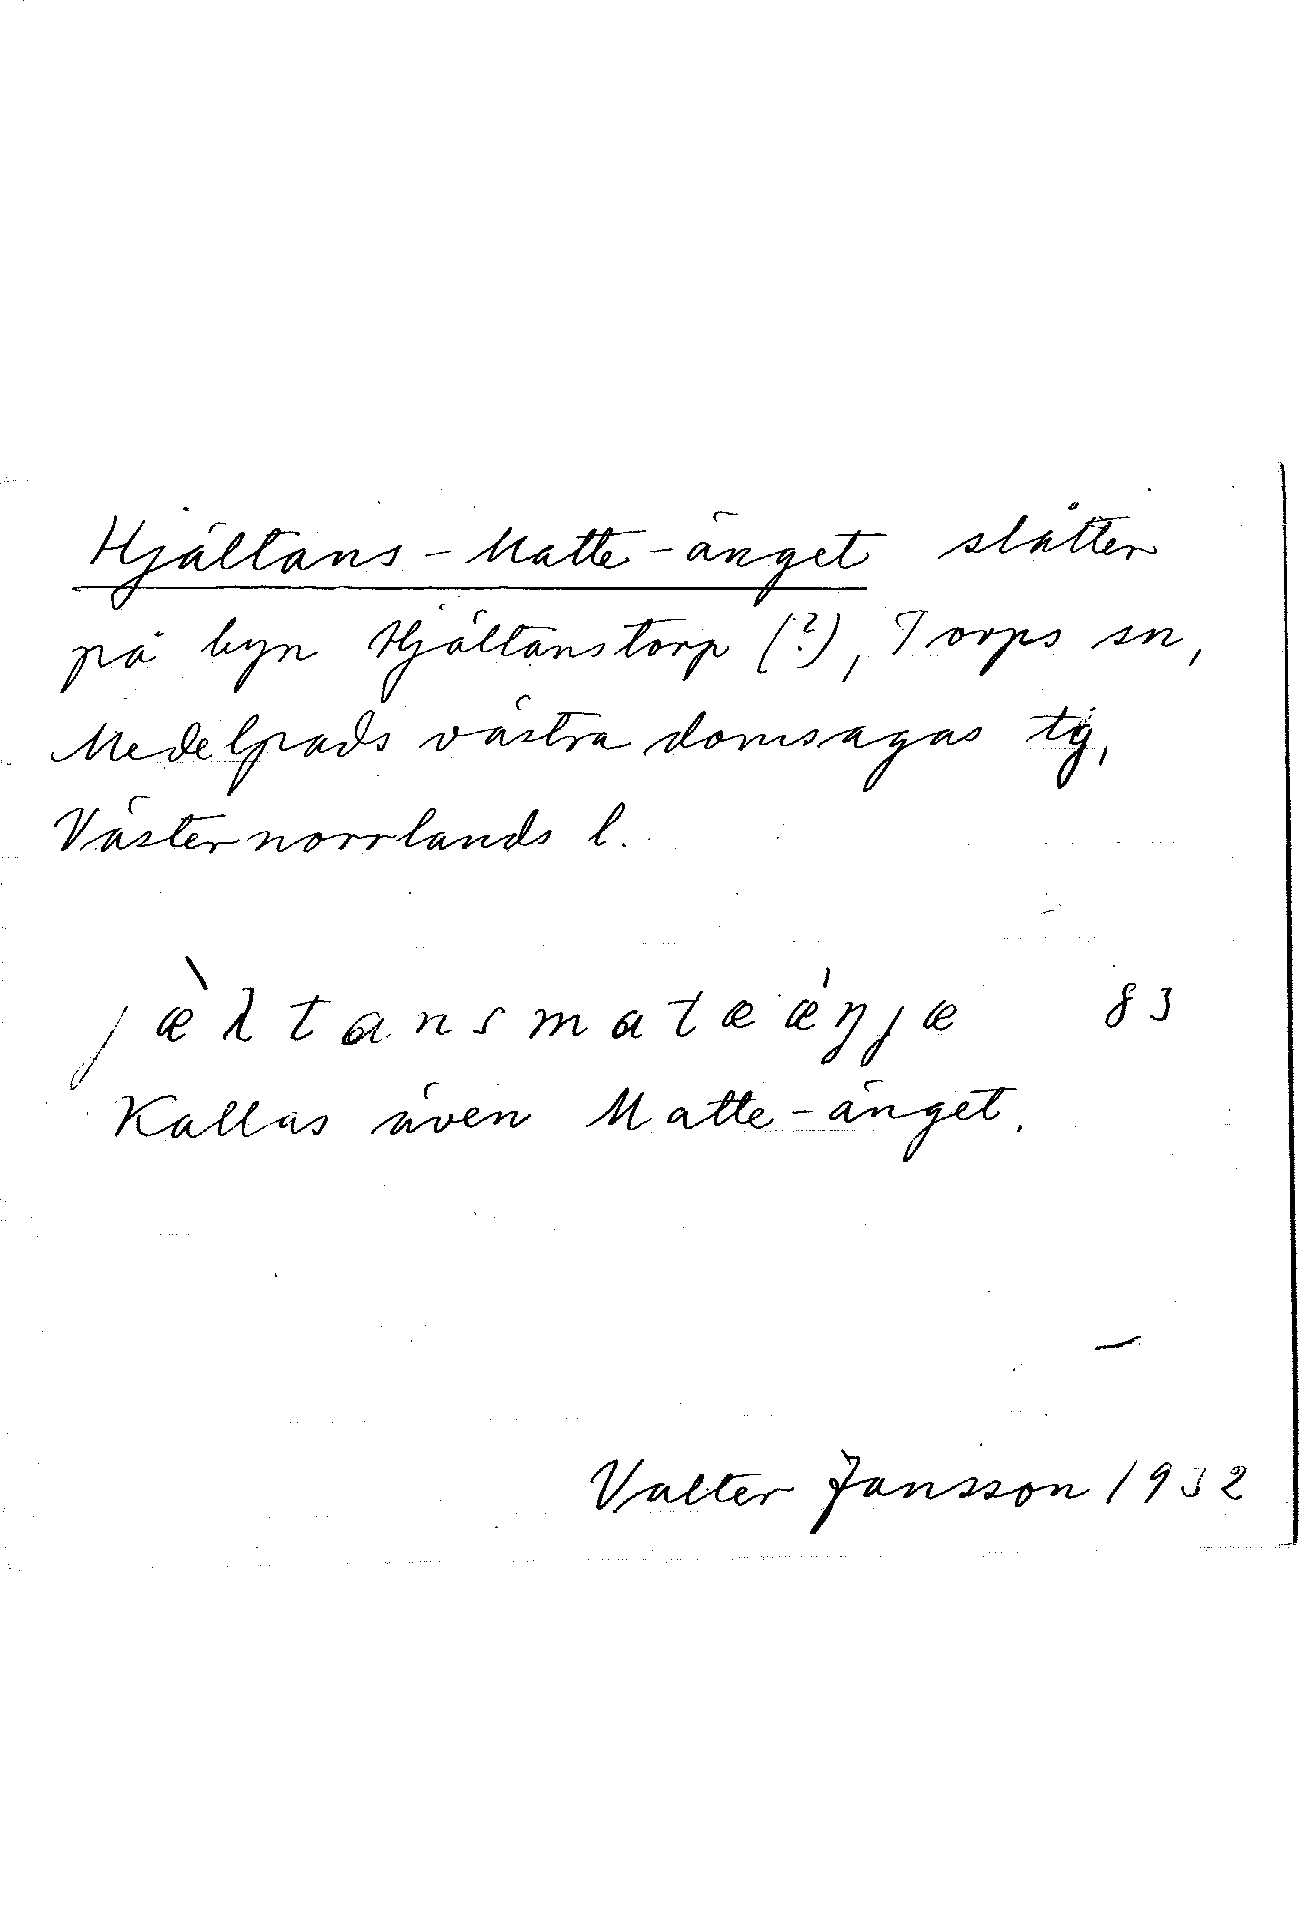 Hjältans-Matte-änget slåtter
på byn Hjältanstorp (?), Torps sn,
Medelpads västra domsagas tg,
Västernorrlands l.
jæ̀ltansmatæǽŋjæ 83
Kallas även Matte-änget.
Valter Jansson 1932